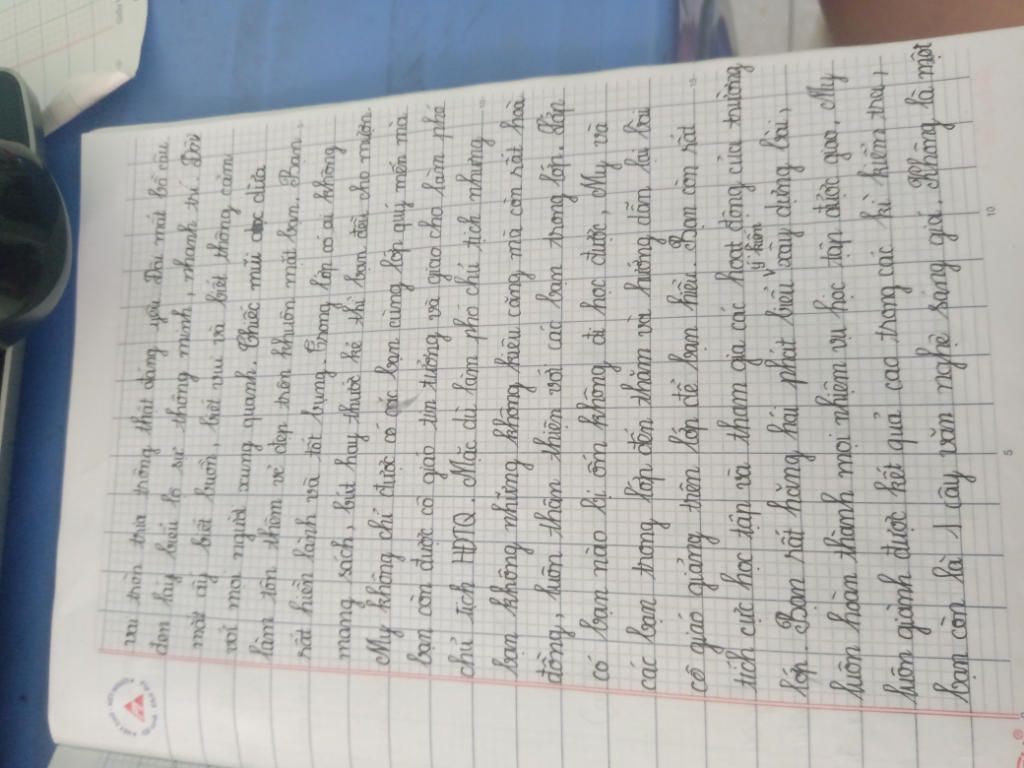 vừa tròn trịa trông thật đáng yêu. Đôi mắt bồ câu
đen láy biểu lộ sự thông minh, nhanh trí. Đôi
mắt ấy biết buồn, biết vui và biết thông cảm
với mọi người xung quanh. Chiếc mũi dọc dừa
làm tôn thêm vẻ đẹp trên khuôn mặt bạn. Bạn
rất hiền lành và tốt bụng. Trong lớp có ai không
mang sách, bút hay thước kẻ thì bạn đều cho mượn
My không chỉ được cô các bạn cùng lớp quý mến mà
bạn còn được cô giáo tin tưởng và giao cho làm phó
chủ tịch HĐTQ. Mặc dù làm phó chủ tịch nhưng
bạn không những không kiêu căng mà còn rất hòa
đồng, luôn thân thiện với các bạn trong lớp. Lớp
có bạn nào bị ốm không đi học được, My và
các bạn trong lớp đến thăm và hướng dẫn lại bài
cô giáo giảng trên lớp để bạn hiểu. Bạn còn rất
tích cực học tập và tham gia các hoạt động của trường
lớp. Bạn rất hăng hái phát biểu ý kiến xây dựng bài,
luôn hoàn thành mọi nhiệm vụ học tập được giao. My
luôn giành được kết quả cao trong các kì kiểm tra,
bạn còn là 1 cây văn nghệ sáng giá. Không là một
5
10